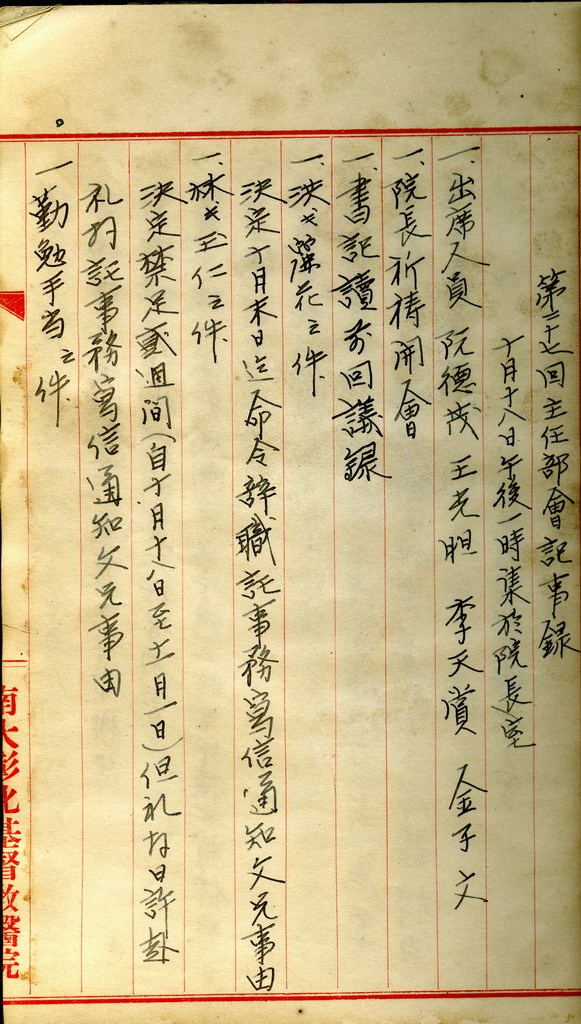 第二十七回主任部會記事録
十月十八日午後一時集於院長室
一、出席人員 阮德茂 王光胆 李天賞 金子文
一、院長祈禱開會
一、書記讀前回議録
一、洪氏 花之件
決定十月末日迄命令辭職託事務寫信通知父兄事由
一、林氏玉仁之件
決定禁足貳週間(自十月十八日至十一月一日)但礼拜日許赴
礼拜託事務寫信通知父兄事由
一 勤勉手当之件
南大彰化基督教醫院